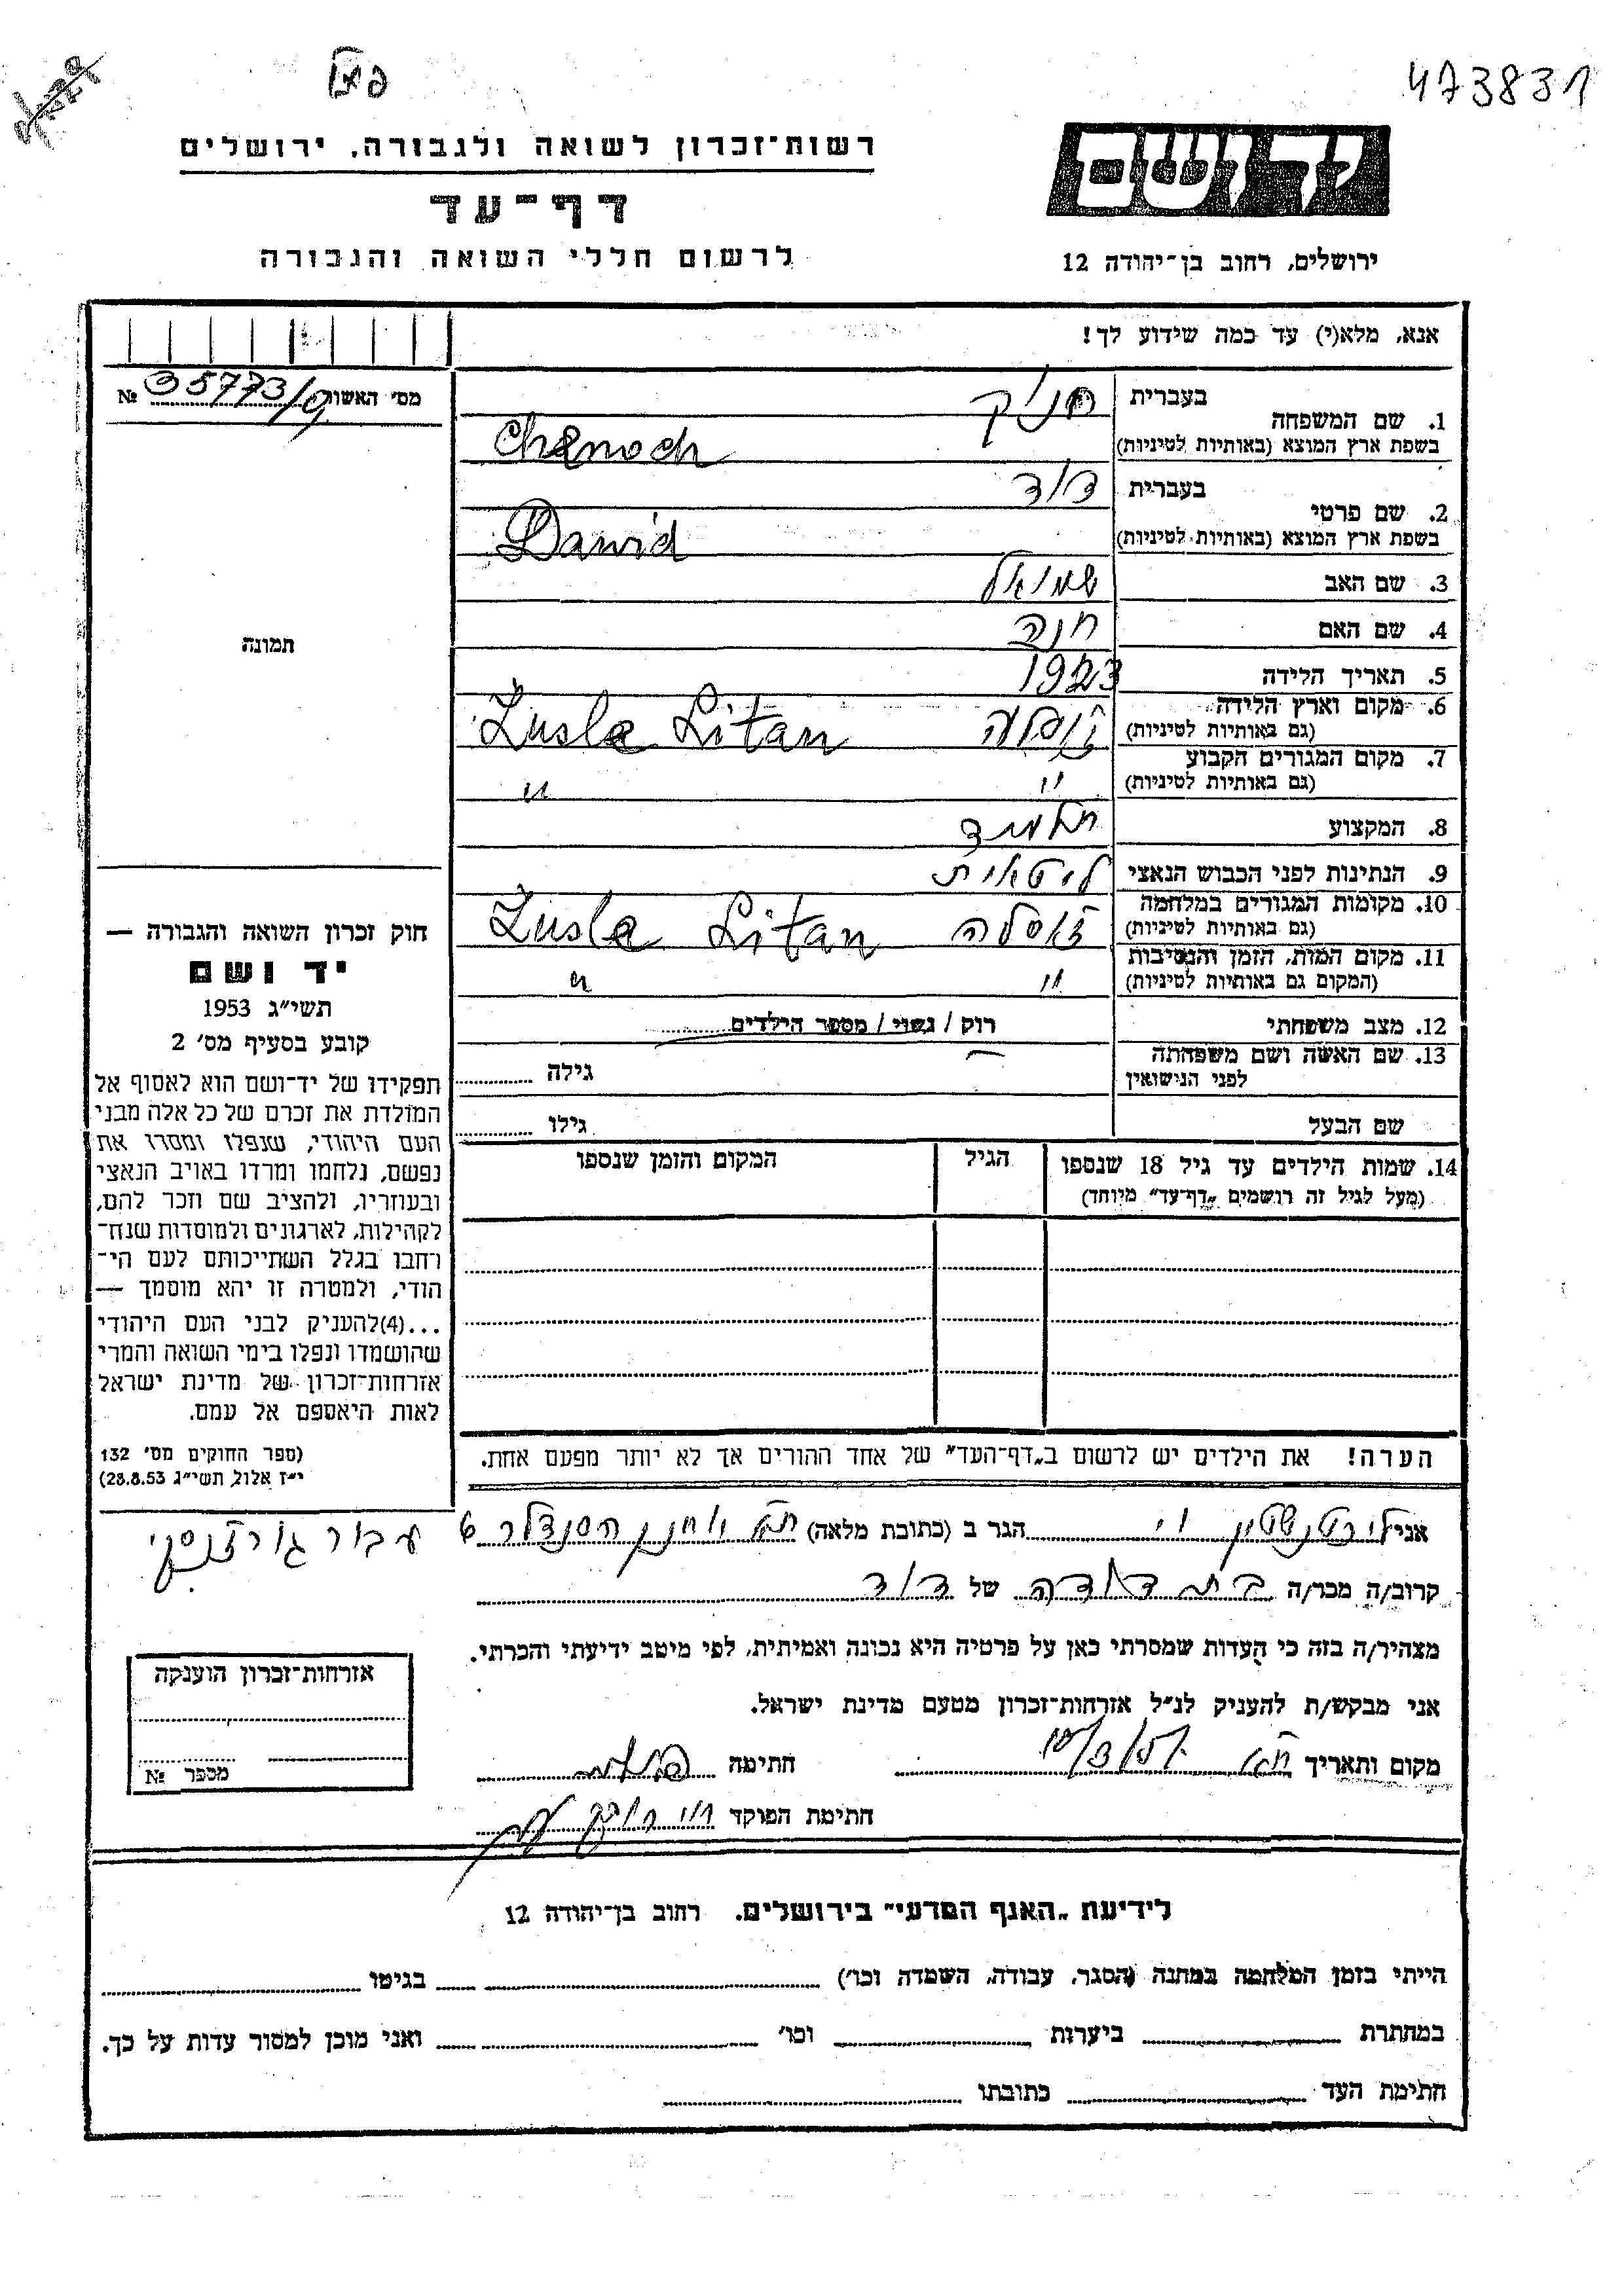 473831
רשות־זכרון לשואה ולגבורה, ירושלים
יד ושם
דף־עד
לרשום חללי השואה והגבורה
ירושלים, רחוב בן־יהודה 12
אנא, מלא(י) עד כמה שידוע לך!
מס׳ האשור 35773/ №
1. שם המשפחה בעברית
בשפת ארץ המוצא (באותיות לטיניות) Chenoch
2. שם פרטי בעברית דוד
בשפת ארץ המוצא (באותיות לטיניות) Dawid
3. שם האב שמואל
4. שם האם חנה
5. תאריך הלידה 1923
6. מקום וארץ הלידה זוסלה Zusle Litan
(גם באותיות לטיניות)
7. מקום המגורים הקבוע " "
(גם באותיות לטיניות)
8. המקצוע תלמיד
9. הנתינות לפני הכבוש הנאצי ליטאית
10. מקומות המגורים במלחמה זוסלה Zusle Litan
(גם באותיות לטיניות)
11. מקום המות, הזמן והנסיבות " "
(המקום גם באותיות לטיניות)
12. מצב משפחתי רוק / נשוי / מספר הילדים
13. שם האשה ושם משפחתה גילה
לפני הנישואין
שם הבעל גילו
14. שמות הילדים עד גיל 18 שנספו הגיל המקום והזמן שנספו
(מעל לגיל זה רושמים „דף־עד" מיוחד)
הערה! את הילדים יש לרשום ב„דף־העד" של אחד ההורים אך לא יותר מפעם אחת.
תמונה
חוק זכרון השואה והגבורה —
יד ושם
תשי״ג 1953
קובע בסעיף מס׳ 2
תפקידו של יד־ושם הוא לאסוף אל
המולדת את זכרם של כל אלה מבני
העם היהודי, שנפלו ומסרו את
נפשם, נלחמו ומרדו באויב הנאצי
ובעוזריו, ולהציב שם וזכר להם,
לקהילות, לארגונים ולמוסדות שנח־
רחבו בגלל השתייכותם לעם הי־
הודי, ולמטרה זו יהא מוסמך —
...(4)להעניק לבני העם היהודי
שהושמדו ונפלו בימי השואה והמרי
אזרחות־זכרון של מדינת ישראל
לאות היאספם אל עמם.
(ספר החוקים מס׳ 132
י״ז אלול, תשי״ג 28.8.53)
אני הגר ב (כתובת מלאה) ת״א יוחנן הסנדלר
קרוב/ה מכר/ה בת דודה של דוד
מצהיר/ה בזה כי העדות שמסרתי כאן על פרטיה היא נכונה ואמיתית, לפי מיטב ידיעתי והכרתי.
אני מבקש/ת להעניק לנ״ל אזרחות־זכרון מטעם מדינת ישראל.
מקום ותאריך ת״א חתימה
חתימת הפוקד
עבור
אזרחות־זכרון הוענקה
מספר №
לידיעת „האגף המדעי" בירושלים. רחוב בן־יהודה 12
הייתי בזמן המלחמה במחנה (הסגר, עבודה, השמדה וכו׳) בגיטו
במחתרת ביערות וכו׳ ואני מוכן למסור עדות על כך.
חתימת העד כתובתו